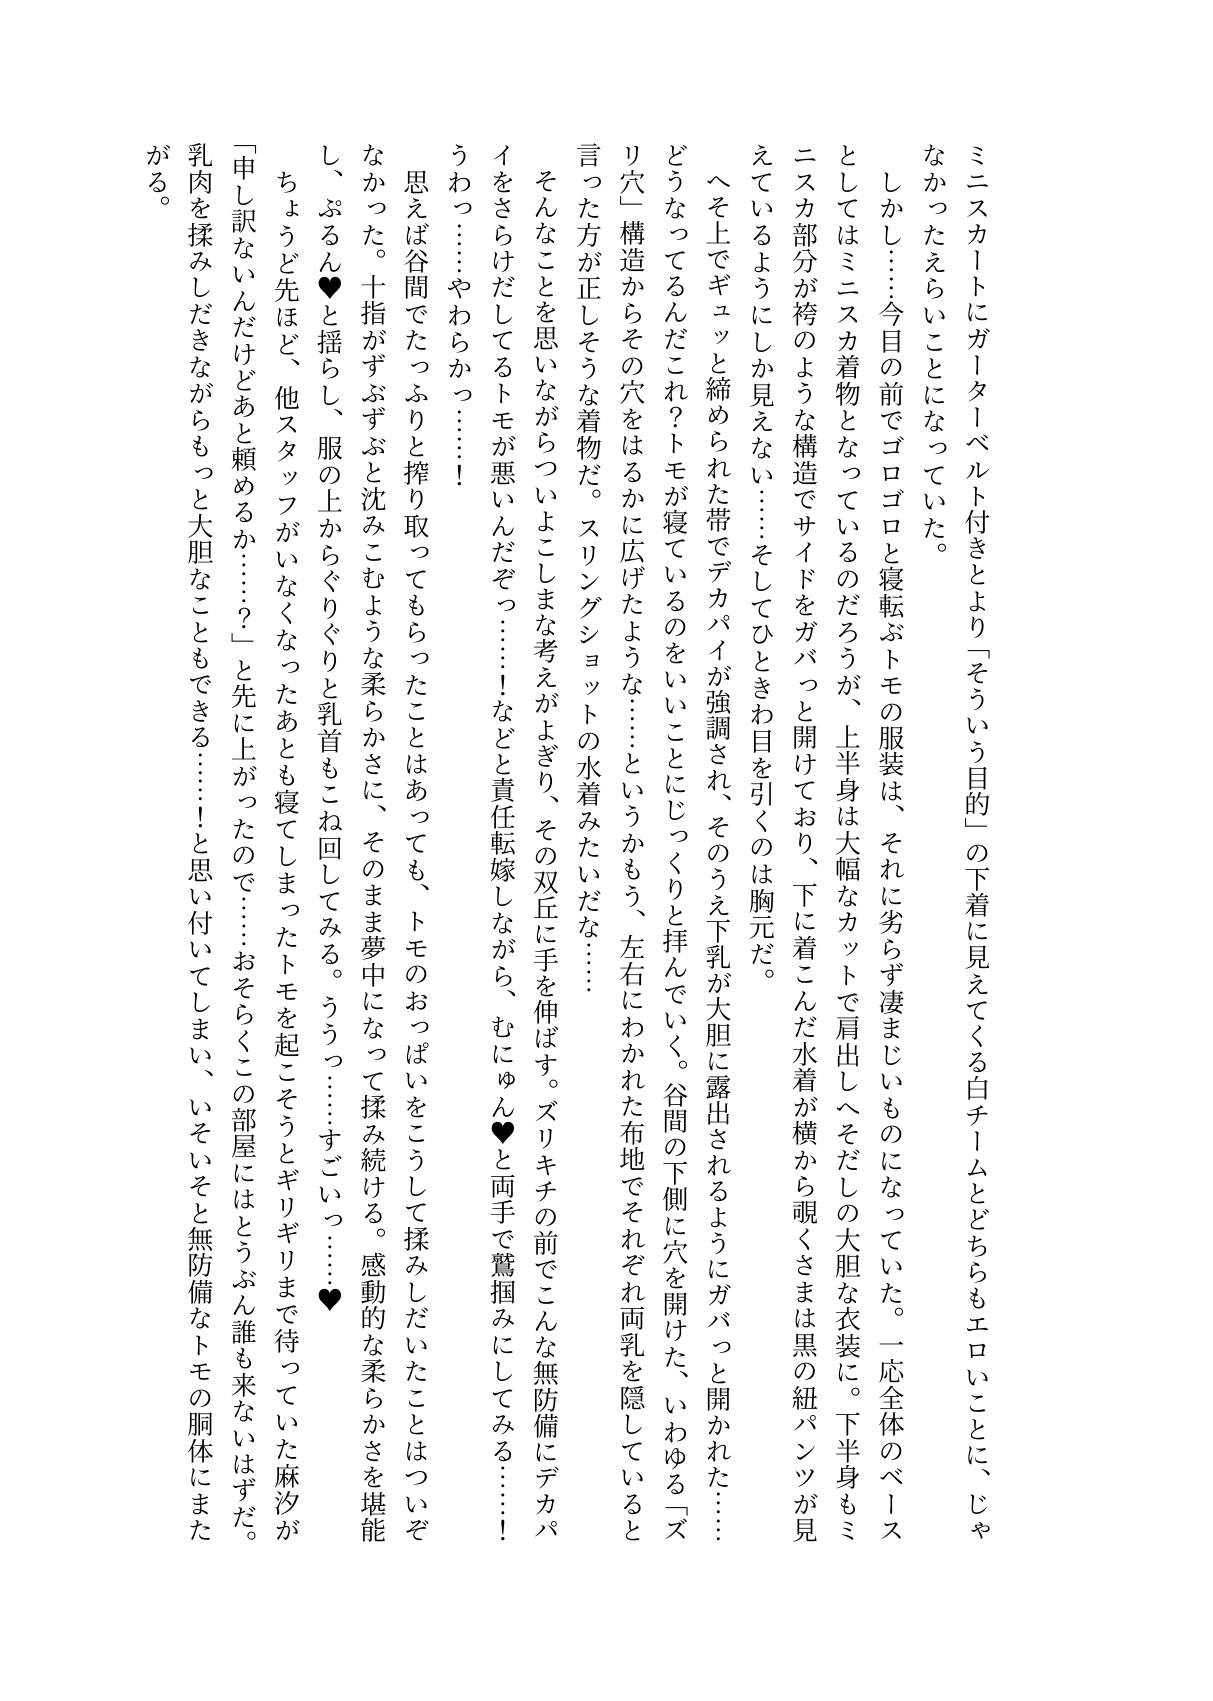 ミニスカートにガーターベルト付きとより「そういう目的」の下着に見えてくる白チームとどちらもエロいことに、じゃ
なかったえらいことになっていた。
しかし……今目の前でゴロゴロと寝転ぶトモの服装は、それに劣らず凄まじいものになっていた。一応全体のベース
としてはミニスカ着物となっているのだろうが、上半身は大幅なカットで肩出しへそだしの大胆な衣装に。下半身もミ
ニスカ部分が袴のような構造でサイドをガバっと開けており、下に着こんだ水着が横から覗くさまは黒の紐パンツが見
えているようにしか見えない……そしてひときわ目を引くのは胸元だ。
へそ上でギュッと締められた帯でデカパイが強調され、そのうえ下乳が大胆に露出されるようにガバっと開かれた……
どうなってるんだこれ？トモが寝ているのをいいことにじっくりと拝んでいく。谷間の下側に穴を開けた、いわゆる「ズ
リ穴」構造からその穴をはるかに広げたような……というかもう、左右にわかれた布地でそれぞれ両乳を隠していると
言った方が正しそうな着物だ。スリングショットの水着みたいだな……
そんなことを思いながらついよこしまな考えがよぎり、その双丘に手を伸ばす。ズリキチの前でこんな無防備にデカパ
イをさらけだしてるトモが悪いんだぞっ……！などと責任転嫁しながら、むにゅん♥と両手で鷲掴みにしてみる……！
うわっ……やわらかっ……！
思えば谷間でたっふりと搾り取ってもらったことはあっても、トモのおっぱいをこうして揉みしだいたことはついぞ
なかった。十指がずぶずぶと沈みこむような柔らかさに、そのまま夢中になって揉み続ける。感動的な柔らかさを堪能
し、ぷるん♥と揺らし、服の上からぐりぐりと乳首もこね回してみる。ううっ……すごいっ……♥
ちょうど先ほど、他スタッフがいなくなったあとも寝てしまったトモを起こそうとギリギリまで待っていた麻汐が
「申し訳ないんだけどあと頼めるか……？」と先に上がったので……おそらくこの部屋にはとうぶん誰も来ないはずだ。
乳肉を揉みしだきながらもっと大胆なこともできる……！と思い付いてしまい、いそいそと無防備なトモの胴体にまた
がる。